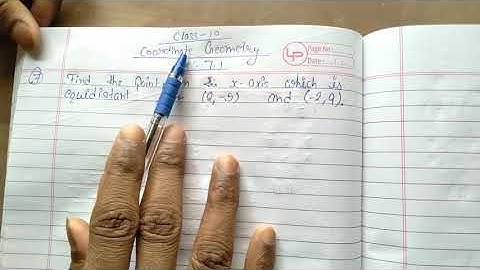 Class-10
Coordinate Geometry
7.1
Page No.
Date:
Q7 Find the point on x-axis which is
equidistant (2,-5) and (-2,9).